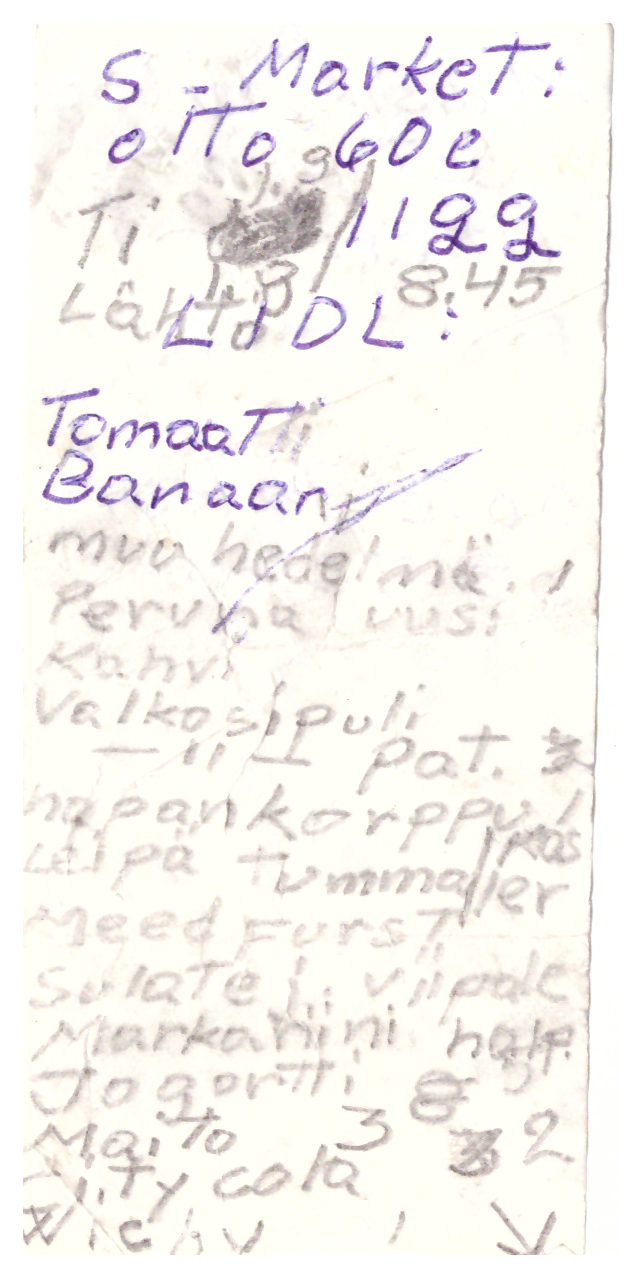 S - Market:
otto 60e
Ti 1199
Lähtö 8.45
LIDL:
Tomaatti
Banaani
muu hedelmä. 1
Peruna uusi
Kahvi
Valkosipuli
— 11 — pat.
näpänkorppu 1
Leipä tummaller
Meed Furst
Sulate j. viipale
Markariini halp.
Jogortti 8
Maito 3 2
city cola
Wichy 1